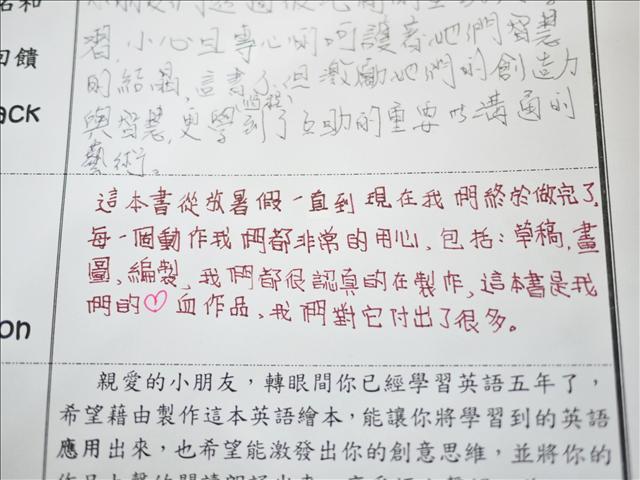 名和
習,小心且專心的呵護著他們智慧
回饋
的結晶,這書不但激勵他們的創造力
ack
與智慧,更學到(過程)了互助的重要 以 溝通的
藝術。
這本書從放暑假一直到現在我們終於做完了,
每一個動作我們都非常的用心、包括:草稿,畫
圖、編製,我們都很認真的在製作,這本書是我
們的♡血作品、我們對它付出了很多。
on
親愛的小朋友,轉眼間你已經學習英語五年了,
希望藉由製作這本英語繪本,能讓你將學習到的英語
應用出來,也希望能激發出你的創意思維,並將你的